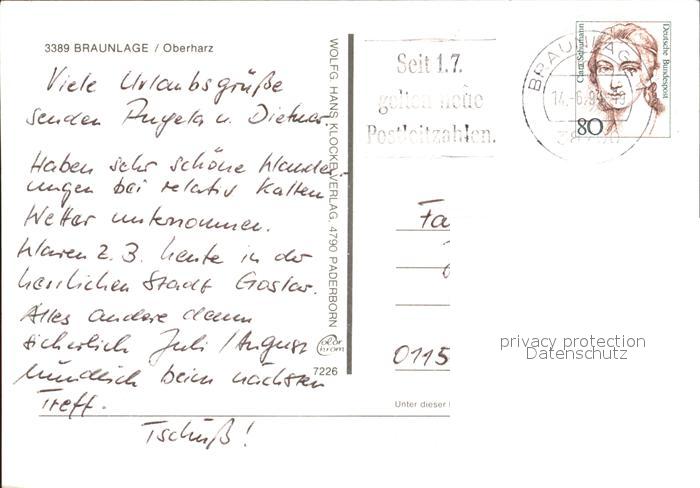 3389 BRAUNLAGE / Oberharz
Viele Urlaubsgrüße
senden Angela u. Dietmar.
Haben sehr schöne Wander-
ungen bei relativ kalten
Wetter unternommen.
Waren z. B. heute in der
herrlichen Stadt Goslar.
Alles andere dann
sicherlich Juli / August
mündlich beim nächsten
Treff.
Tschüß!
WOLFG. HANS KLOCKE VERLAG, 4790 PADERBORN
color chrom
7226
Seit 1.7.
gelten neue
Postleitzahlen.
BRAUNLAGE
14.-6.9
Deutsche Bundespost
80
Fa
0115
Unter dieser
privacy protection
Datenschutz